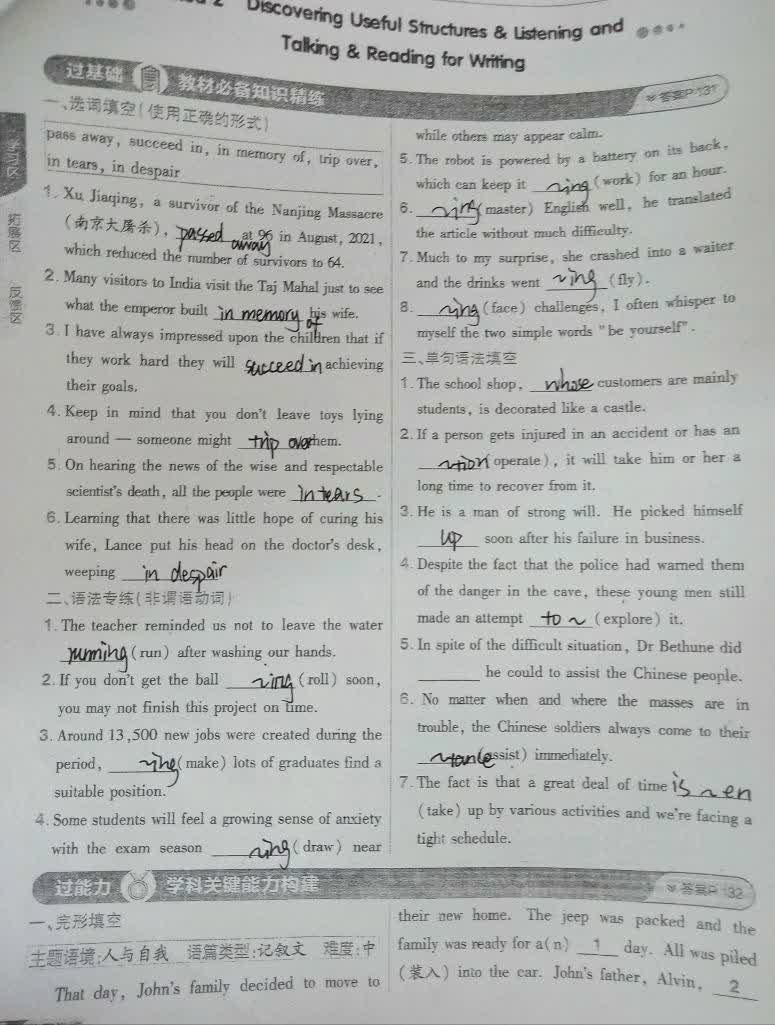 Discovering Useful Structures & Listening and
Talking & Reading for Writing
过基础 教材必备知识精练
答案P 131
学习区
拓展区
反馈区
一、选词填空(使用正确的形式)
pass away, succeed in, in memory of, trip over,
in tears, in despair
1. Xu Jiaqing, a survivor of the Nanjing Massacre
(南京大屠杀), passed away at 96 in August, 2021,
which reduced the number of survivors to 64.
2. Many visitors to India visit the Taj Mahal just to see
what the emperor built in memory of his wife.
3. I have always impressed upon the children that if
they work hard they will succeed in achieving
their goals.
4. Keep in mind that you don't leave toys lying
around — someone might trip over them.
5. On hearing the news of the wise and respectable
scientist's death, all the people were in tears.
6. Learning that there was little hope of curing his
wife, Lance put his head on the doctor's desk,
weeping in despair
二、语法专练(非谓语动词)
1. The teacher reminded us not to leave the water
running (run) after washing our hands.
2. If you don't get the ball ~ing (roll) soon,
you may not finish this project on time.
3. Around 13,500 new jobs were created during the
period, ~ing (make) lots of graduates find a
suitable position.
4. Some students will feel a growing sense of anxiety
with the exam season ~ing (draw) near
while others may appear calm.
5. The robot is powered by a battery on its back,
which can keep it ~ing (work) for an hour.
6. ~ing (master) English well, he translated
the article without much difficulty.
7. Much to my surprise, she crashed into a waiter
and the drinks went ~ing (fly).
8. ~ing (face) challenges, I often whisper to
myself the two simple words "be yourself".
三、单句语法填空
1. The school shop, whose customers are mainly
students, is decorated like a castle.
2. If a person gets injured in an accident or has an
~tion (operate), it will take him or her a
long time to recover from it.
3. He is a man of strong will. He picked himself
up soon after his failure in business.
4. Despite the fact that the police had warned them
of the danger in the cave, these young men still
made an attempt to ~ (explore) it.
5. In spite of the difficult situation, Dr Bethune did
______ he could to assist the Chinese people.
6. No matter when and where the masses are in
trouble, the Chinese soldiers always come to their
~tance (assist) immediately.
7. The fact is that a great deal of time is ~en
(take) up by various activities and we're facing a
tight schedule.
过能力 学科关键能力构建
答案P 132
一、完形填空
主题语境:人与自我 语篇类型:记叙文 难度:中
That day, John's family decided to move to
their new home. The jeep was packed and the
family was ready for a(n) 1 day. All was piled
(装入) into the car. John's father, Alvin, 2